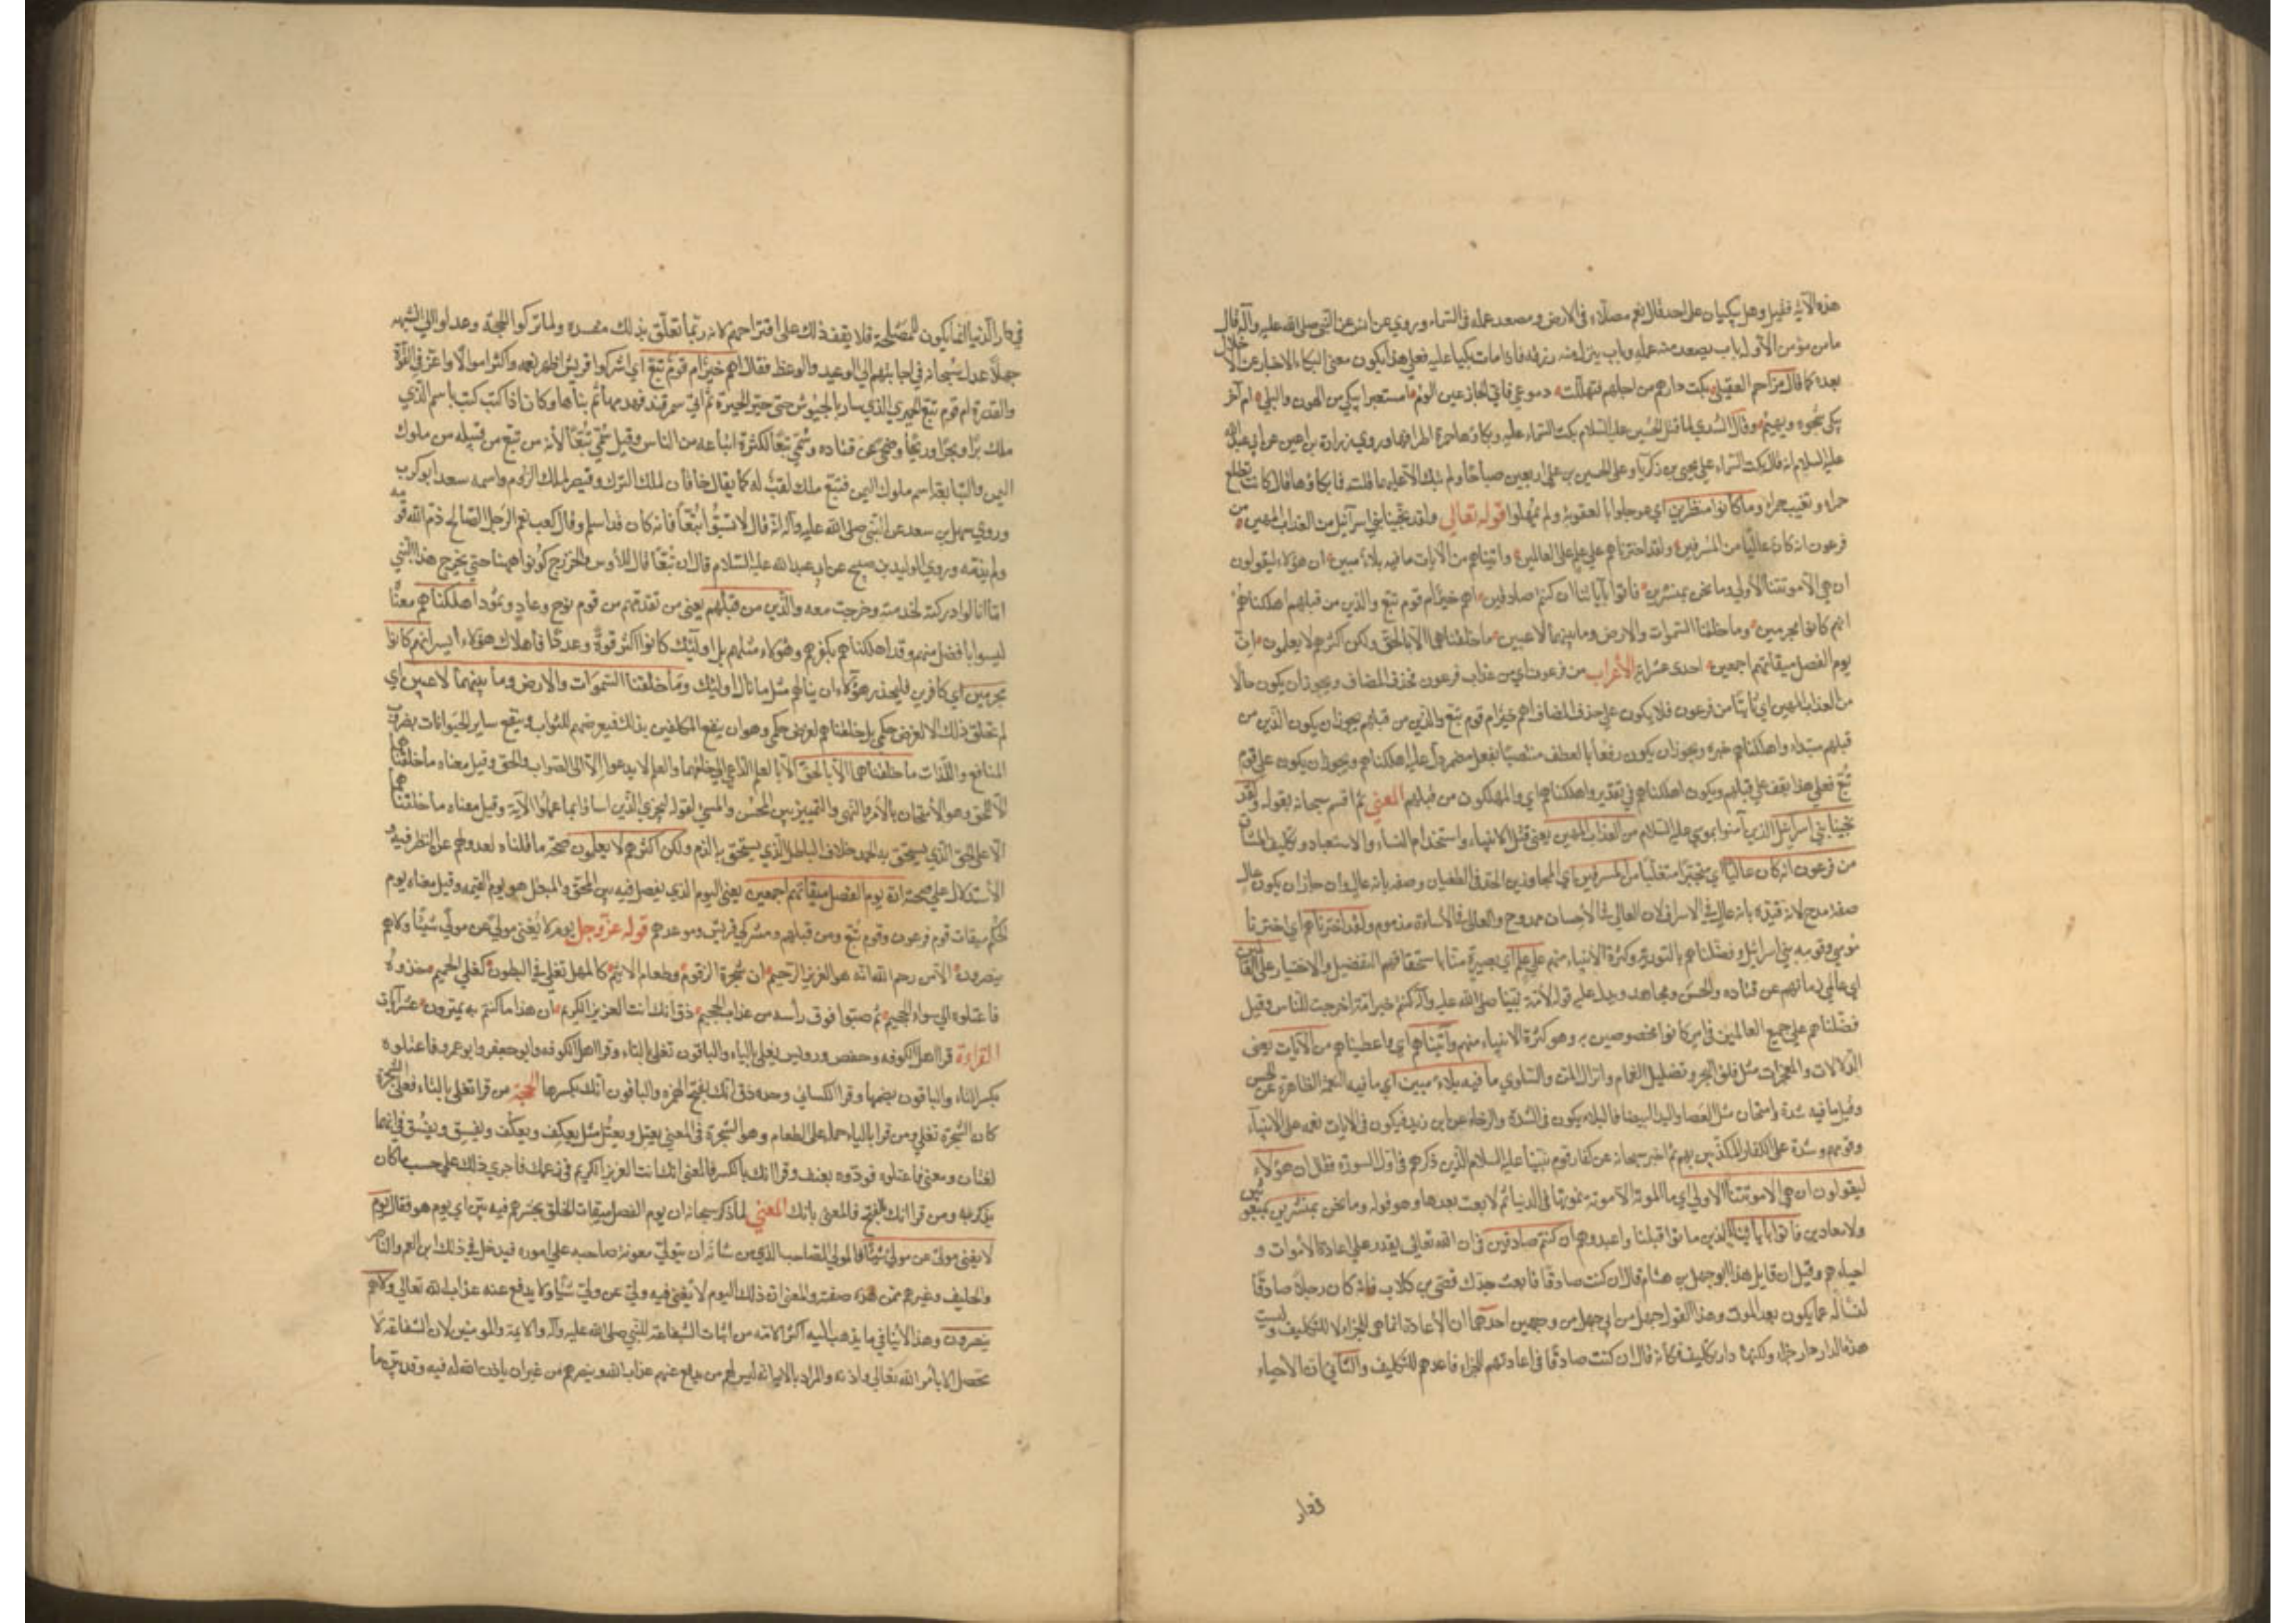 هذه الآية فقيل وهل يبكيان على احد قال نعم مصلاه في الارض ومصعد عمله في السماء وروي عن انس عن النبي صلى الله عليه وآله قال
ما من مؤمن الا وله باب يصعد منه عمله وباب ينزل منه رزقه فاذا مات بكيا عليه فعلى هذا يكون معنى البكاء الاخبار عن الاختلال
بعده كما قال مزاحم العقيلي بكت دارهم من اجلهم فتهللت دموعي فاي الجازعين الوم امستعبرا يبكي من الهون والبلى ام آخر
يبكي شجوه ويهيم وقال السدي لما قتل الحسين عليه السلام بكت السماء عليه وبكاؤها حمرة اطرافها وروى زرارة بن اعين عن ابي عبد الله
عليه السلام انه قال بكت السماء على يحيى بن زكريا وعلى الحسين بن علي اربعين صباحا ولم تبك الا عليهما قلت فما بكاؤها قال كانت تطلع
حمراء وتغيب حمراء وما كانوا منظرين اي عوجلوا بالعقوبة ولم يمهلوا قوله تعالى ولقد نجينا بني اسرآئيل من العذاب المهين من
فرعون انه كان عاليا من المسرفين ولقد اخترناهم على علم على العالمين واتيناهم من الآيات ما فيه بلاء مبين ان هؤلاء ليقولون
ان هي الا موتتنا الاولى وما نحن بمنشرين فاتوا بآبائنا ان كنتم صادقين اهم خير ام قوم تبع والذين من قبلهم اهلكناهم
انهم كانوا مجرمين وما خلقنا السموات والارض وما بينهما لاعبين ما خلقناهما الا بالحق ولكن اكثرهم لا يعلمون ان
يوم الفصل ميقاتهم اجمعين احدى عشرة آية الأعراب من فرعون اي من عذاب فرعون فحذف المضاف ويجوز ان يكون حالا
من العذاب المهين اي ثابتا من فرعون فلا يكون على حذف المضاف اهم خير ام قوم تبع والذين من قبلهم يجوز ان يكون الذين من
قبلهم مبتداء واهلكناهم خبره ويجوز ان يكون رفعا بالعطف منتصبا بفعل مضمر دل عليه اهلكناهم ويجوز ان يكون على قوم
تبع فعلى هذا يقف على قبلهم ويكون اهلكناهم في تقدير واهلكناهم اي والمهلكون من قبلهم المعني ثم اقسم سبحانه بقوله ولقد
نجينا بني اسرآئيل الذين آمنوا بموسى عليه السلام من العذاب المهين يعني قتل الابناء واستخدام النساء والاستعباد وتكليف المشاق
من فرعون انه كان عاليا اي متجبرا متغلبا من المسرفين اي المجاوزين الحد في الطغيان وصفه بانه عال وان جاز ان يكون عال
صفة مدح لانه قيده بانه عال في الاسراف لان العالي في الاحسان ممدوح والعالي في الأساءة مذموم ولقد اخترناهم اي اخترنا
موسى وقومه بني اسرائيل وفضلناهم بالتورية وكثرة الانبياء منهم على علم اي بصيرة منا باستحقاقهم التفضيل والاختيار على العالمين
اي عالمي زمانهم عن قتاده والحسن ومجاهد ويدل عليه قوله لأمة نبينا صلى الله عليه وآله كنتم خير امة اخرجت للناس وقيل
فضلناهم على جميع العالمين في امر كانوا مخصوصين به وهو كثرة الانبياء منهم وآتيناهم اي واعطيناهم من الآيات يعني
الدلالات والمعجزات مثل فلق البحر وتظليل الغمام وانزال المن والسلوى ما فيه بلاء مبين اي ما فيه النعمة الظاهرة عن الحسن
وقيل ما فيه شدة وامتحان مثل العصا واليد البيضا فالبلاء يكون في الشدة والرخاء عن ابن زيد فيكون في الايات نعمة على الانبياء
وقومهم وشدة على الكفار المكذبين بهم ثم اخبر سبحانه عن كفار قوم نبينا عليه السلام الذين ذكرهم في اول السورة فقال ان هؤلاء
ليقولون ان هي الا موتتنا الاولى اي ما الموتة الا موتة نموتها في الدنيا ثم لا بعث بعدها وهو قوله وما نحن بمنشرين اي بمبعوثين
ولا معادين فاتوا بآبائنا الذين ماتوا قبلنا واعيدوهم ان كنتم صادقين في ان الله تعالى يقدر على اعادة الأموات و
احيائهم وقيل ان قايل هذا ابو جهل بن هشام قال ان كنت صادقا فابعث جدك قصي بن كلاب فانه كان رجلا صادقا
لنساله عما يكون بعد الموت وهذا القول جهل من ابي جهل من وجهين احدهما ان الأعادة انما هي للجزاء لا للتكليف وليست
هذه الدار دار جزاء ولكنها دار تكليف فكانه قال ان كنت صادقا في اعادتهم للجزاء فاعدهم للتكليف والثاني ان الأحياء
في دار الدنيا انما يكون للمصلحة فلا يقف ذلك على اقتراحهم لانه ربما تعلق بذلك مفسده ولما تركوا الحجة وعدلوا الى الشبهة
جهلا عدل سبحانه في اجابتهم الى الوعيد والوعظ فقال اهم خير ام قوم تبع اي اشركوا قريش اظهر نعمة واكثر اموالا واعز في القوة
والقدرة ام قوم تبع الحميري الذي سار بالجيوش حتى حير الحيرة ثم اتى سمرقند فهدمها ثم بناها وكان اذا كتب كتب باسم الذي
ملك برا وبحرا وريحا وضحى عن قتاده وسمي تبعا لكثرة اتباعه من الناس وقيل سمي تبعا لأنه من تبع من قبله من ملوك
اليمن والتبابعة اسم ملوك اليمن فتبع ملك لقب له كما يقال خاقان لملك الترك وقيصر لملك الروم واسمه سعد ابو كرب
وروى سهل بن سعد عن النبي صلى الله عليه وآله انه قال لا تسبوا تبعا فانه كان قد اسلم وقال كعب نعم الرجل الصالح ذم الله قومه
ولم يذمه وروى الوليد بن صبيح عن ابي عبد الله عليه السلام قال ان تبعا قال للأوس والخزرج كونوا هيهنا حتى يخرج هذا النبي
اما انا لو ادركته لخدمته وخرجت معه والذين من قبلهم يعني من تقدمهم من قوم نوح وعاد وثمود اهلكناهم معناه
ليسوا بافضل منهم وقد اهلكناهم بكفرهم وهؤلاء مثلهم بل اولئك كانوا اكثر قوة وعددا فاهلاك هؤلاء ايسر انهم كانوا
مجرمين اي كافرين فليحذر هؤلاء ان ينالهم مثل ما نال اولئك وما خلقنا السموات والارض وما بينهما لاعبين اي
لم نخلق ذلك الا لغرض حكمي بل خلقناهم لغرض حكمي وهو ان ينفع المكلفين بذلك فيعرضهم للثواب وينتفع ساير الحيوانات بضروب
المنافع واللذات ما خلقناهما الا بالحق الا بالعلم الداعي الى خلقهما والعلم لا يدعوا الا الى الصواب والحق وقيل معناه ما خلقناهما
الا للحق وهو الامتحان بالأمر والنهي والتمييز بين المحسن والمسيء لقوله ليجزي الذين اساؤا بما عملوا الآية وقيل معناه ما خلقناهما
الا على الحق الذي يستحق به الحمد خلاف الباطل الذي يستحق به الذم ولكن اكثرهم لا يعلمون صحة ما قلناه لعدولهم عن النظر فيه و
الأستدلال على صحته ان يوم الفصل ميقاتهم اجمعين يعني اليوم الذي يفصل فيه بين المحق والمبطل هو يوم القيمه وقيل معناه يوم
الحكم ميقات قوم فرعون وقوم تبع ومن قبلهم ومشركي قريش وموعدهم قوله عز وجل يوم لا يغني مولى عن مولى شيئا ولا هم
ينصرون الا من رحم الله انه هو العزيز الرحيم ان شجرة الزقوم طعام الاثيم كالمهل تغلي في البطون كغلي الحميم خذوه
فاعتلوه الى سواء الجحيم ثم صبوا فوق رأسه من عذاب الحميم ذق انك انت العزيز الكريم ان هذا ما كنتم به تمترون عشر آيات
القراءة قرأ اهل الكوفه وحفص ورويس يغلي بالياء والباقون تغلي بالتاء وقرأ اهل الكوفه وابو جعفر وابو عمرو فاعتلوه
بكسر التاء والباقون بضمها وقرأ الكسائي وحده ذق انك بفتح الهمزه والباقون انك بكسرها الحجة من قرا تغلي بالتاء فعلى الشجرة
كان الشجرة تغلي ومن قرا بالياء حمله على الطعام وهو الشجرة في المعنى ويعتل ويعتُل مثل يعكف ويعكُف ويفسق ويفسُق في انهما
لغتان ومعنى فاعتلوه قودوه بعنف وقرا انك بالكسر فالمعنى انك انت العزيز الكريم في زعمك فاجرى ذلك على حسب ما كان
يذكر به ومن قرا انك بالفتح فالمعنى بانك المعني لما ذكر سبحانه ان يوم الفصل ميقات الخلق يحشرهم فيه بين اي يوم هو فقال يوم
لا يغني مولى عن مولى شيئا فالمولى الصاحب الذي من شانه ان يتولى معونة صاحبه على اموره فيدخل في ذلك ابن العم والناصر
والحليف وغيرهم ممن هذه صفته والمعنى ان ذلك اليوم لا يغني فيه ولي عن ولي شيئا ولا يدفع عنه عذاب الله تعالى ولا هم
ينصرون وهذا لا ينافي ما يذهب اليه اكثر الامه من اثبات الشفاعة للنبي صلى الله عليه وآله والايمة والمومنين لان الشفاعة لا
تحصل الا بأمر الله تعالى واذنه والمراد بالاية انه ليس لهم من يدفع عنهم عذاب الله وينصرهم من غير ان ياذن الله له فيه وقد بين ما
في دار